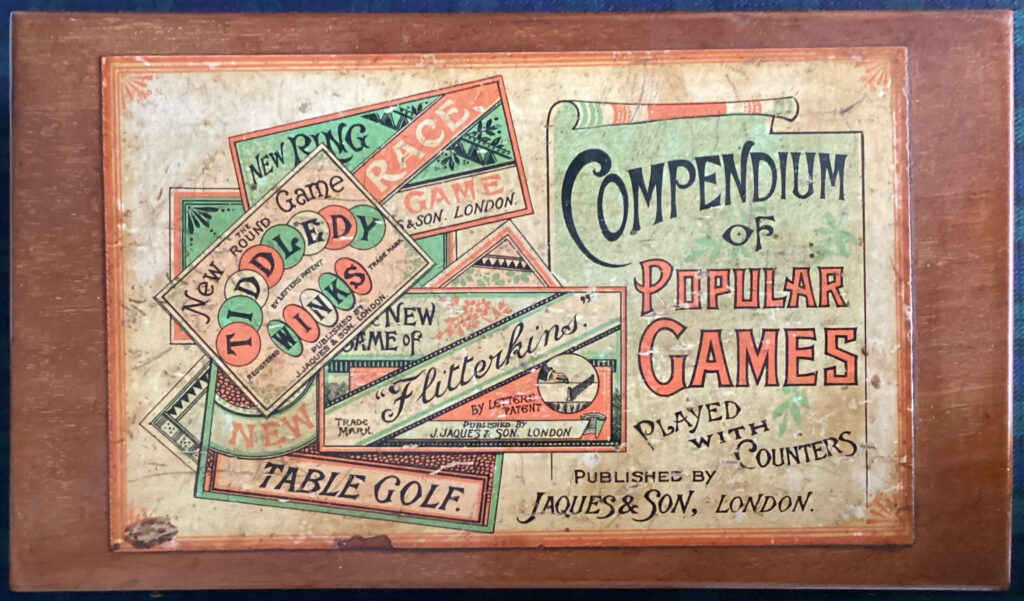 NEW RING
RACE,
GAME
& SON. LONDON.
New
THE
ROUND
Game
TIDDLEDY
BY LETTERS PATENT
TRADE MARK
WINKS
REGISTERED
PUBLISHED BY
J. JAQUES & SON. LONDON
NEW
GAME OF
"Flitterkins."
BY LETTERS
PATENT
TRADE
MARK.
PUBLISHED BY
J. JAQUES & SON. LONDON
NEW
TABLE GOLF.
COMPENDIUM
OF
POPULAR
GAMES
PLAYED
WITH
COUNTERS
PUBLISHED BY
JAQUES & SON, LONDON.